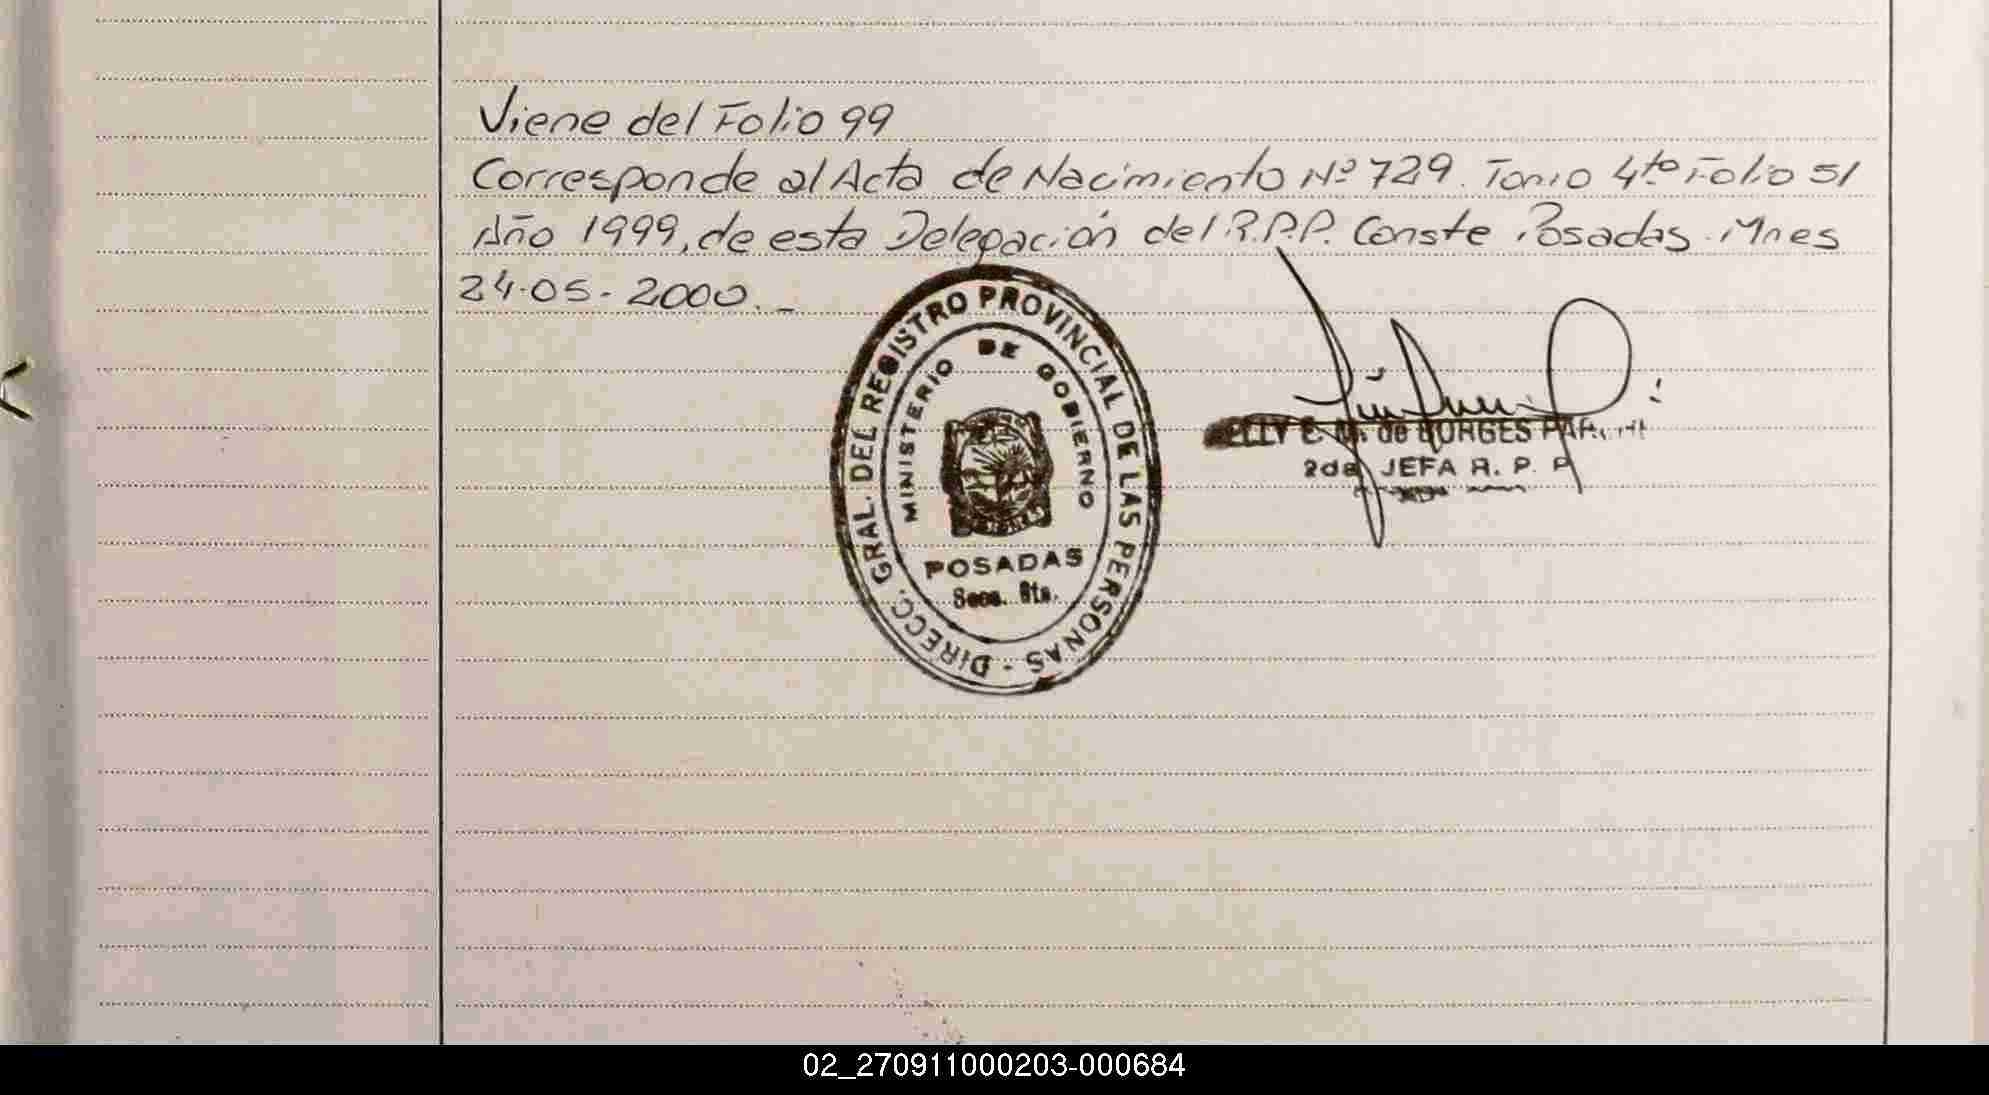 Viene del Folio 99
Corresponde al Acta de Nacimiento Nº 729. Tomo 4to Folio 51
Año 1999, de esta Delegación del R.P.P. Conste Posadas. Mnes
24-05-2000._
DIRECC. GRAL. DEL REGISTRO PROVINCIAL DE LAS PERSONAS -
MINISTERIO DE GOBIERNO
POSADAS
de BORGES
2da JEFA R. P. P
02_270911000203-000684